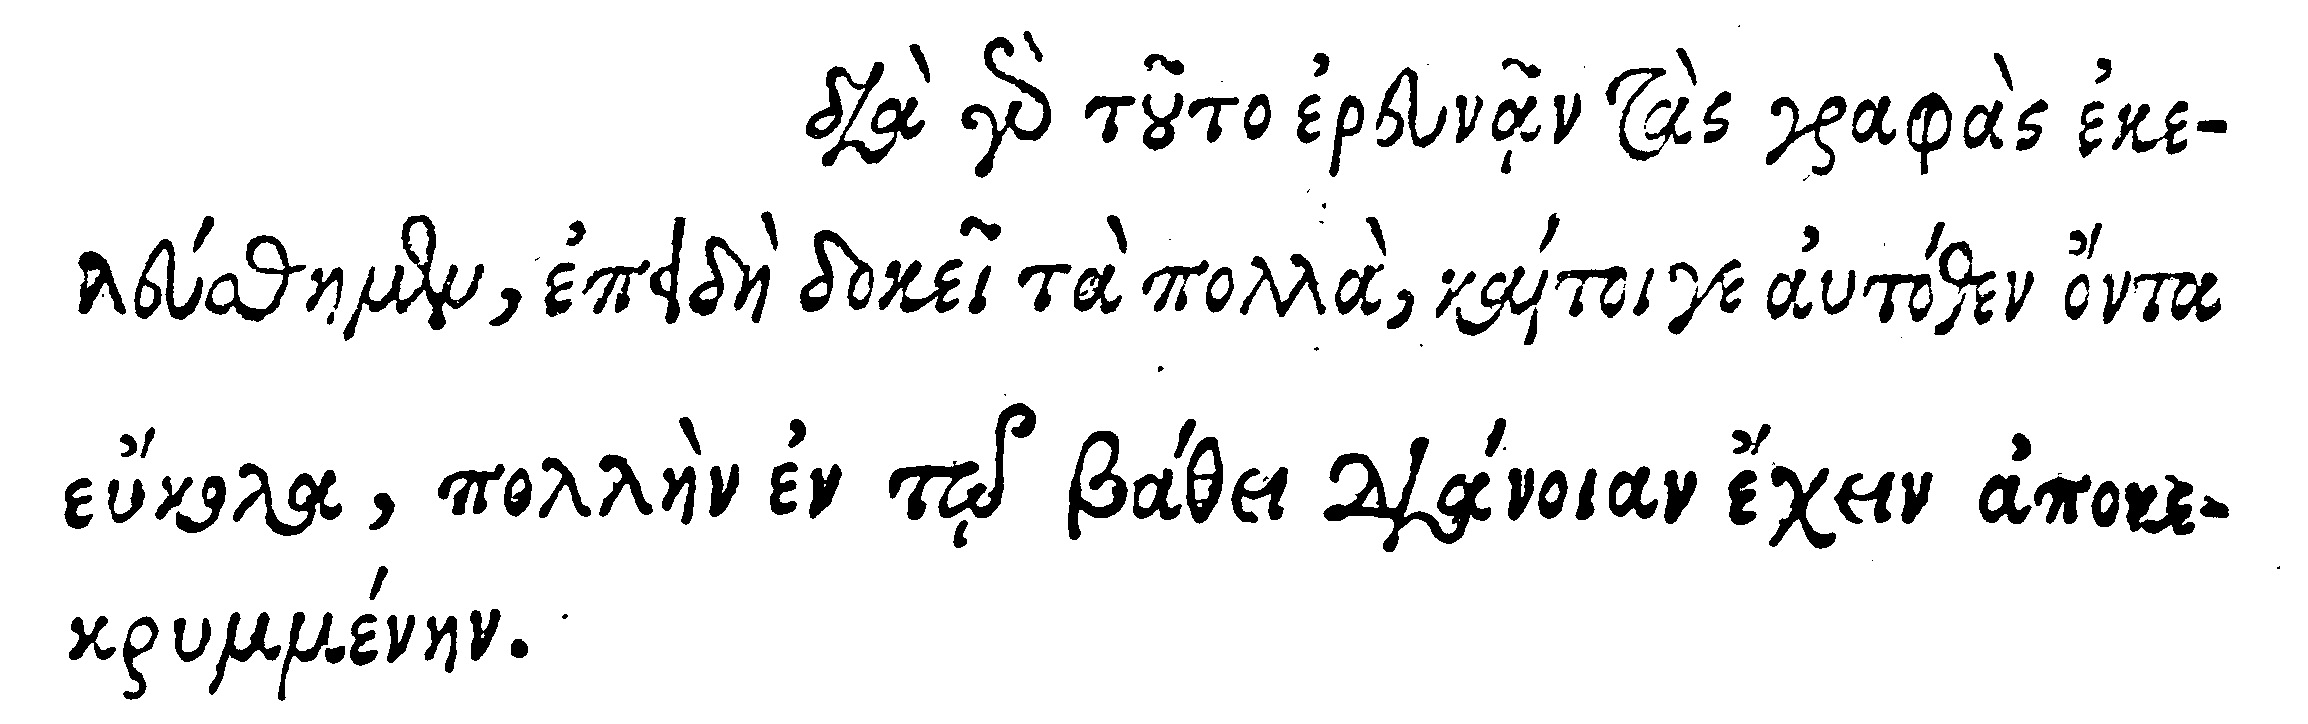 διὰ γὰρ τοῦτο ἐρευνᾷν τὰς γραφὰς ἐκε-
λεύσθημεν, ἐπειδὴ δοκεῖ τὰ πολλὰ, καίτοιγε ἀυτόθεν ὄντα
εὔκολα, πολλὴν ἐν τῷ βάθει διάνοιαν ἔχειν ἀποκε-
κρυμμένην.